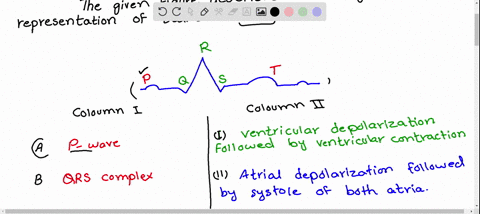 The given
representation of
R
P Q S T
Coloumn I Coloumn II
A P-wave
(I) ventricular depolarization
followed by ventricular contraction
B QRS complex
(II) Atrial depolarization followed
by systole of both atria.